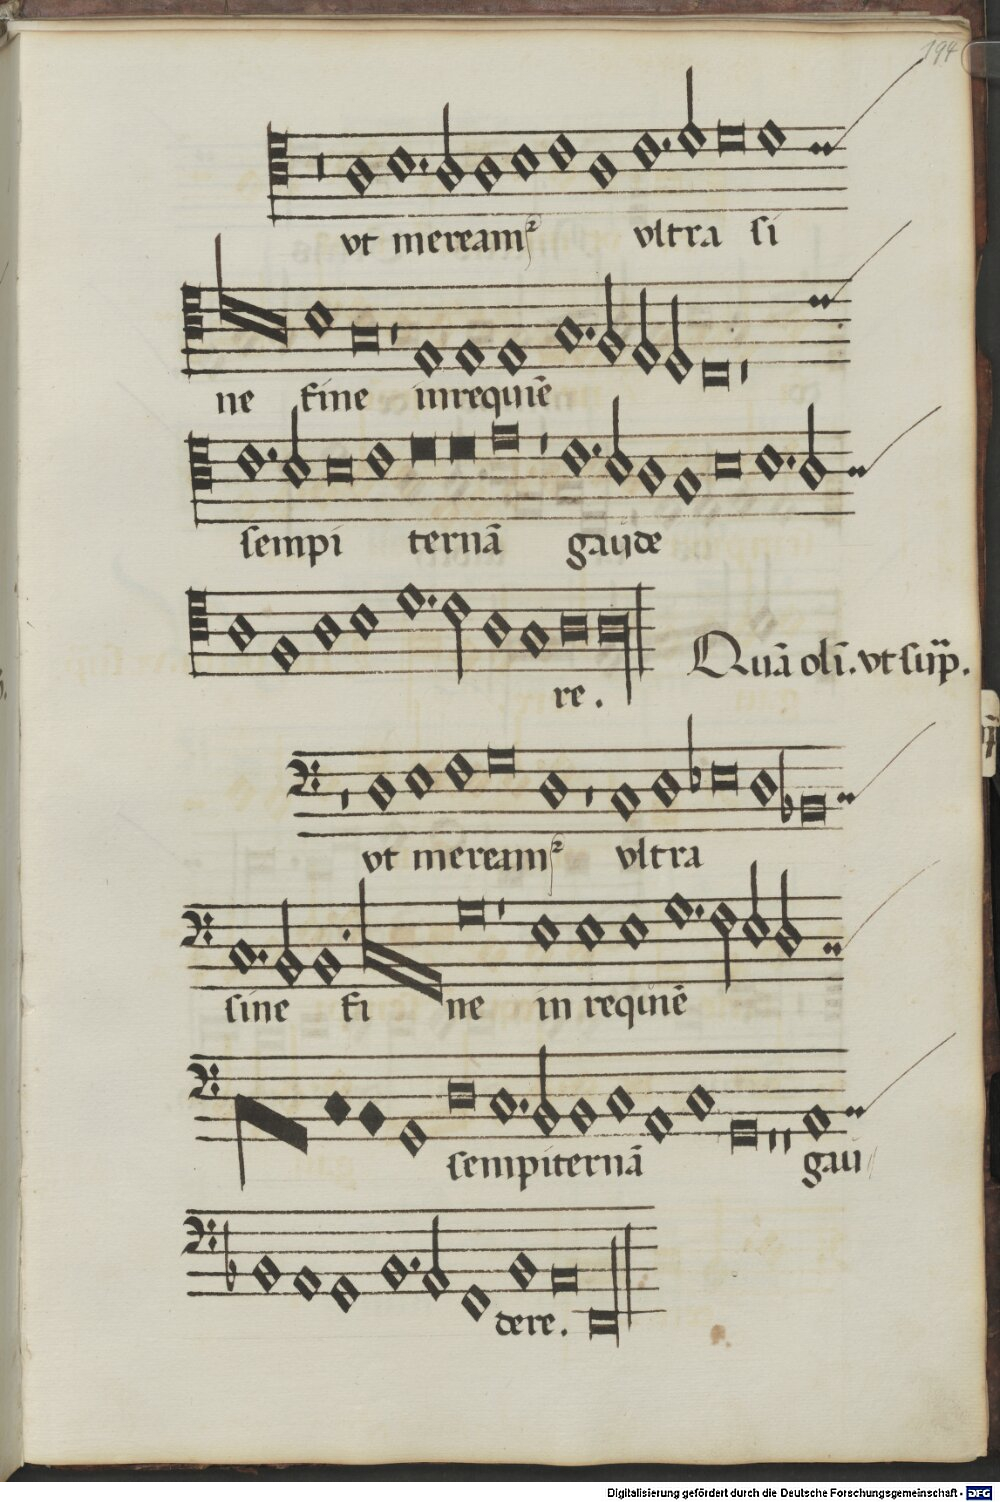 194
vt meream᷑ vltra si
ne fine inrequiē
sempi ternā gaude
re.
Quā oli. vt sup.
vt meream᷑ vltra
sine fi ne in requiē
sempiternā gau
dere.
Digitalisierung gefördert durch die Deutsche Forschungsgemeinschaft - DFG